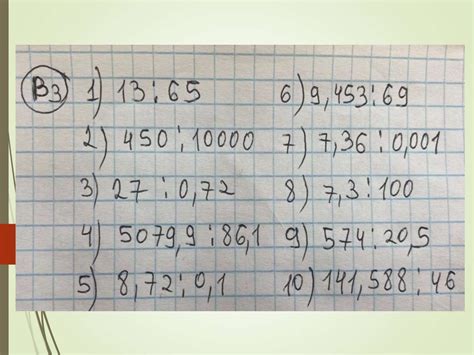 В3 1) 13:65
2) 450:10000
3) 27:0,72
4) 5079,9:86,1
5) 8,72:0,1
6) 9,453:69
7) 7,36:0,001
8) 7,3:100
9) 574:20,5
10) 141,588:46